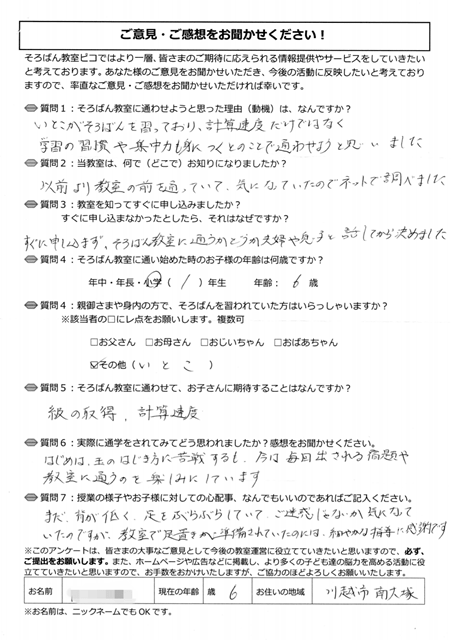 ご意見・ご感想をお聞かせください!
そろばん教室ピコではより一層、皆さまのご期待に応えられる情報提供やサービスをしていきたい
と考えております。あなた様のご意見をお聞かせいただき、今後の活動に反映したいと考えており
ますので、率直なご意見・ご感想をお聞かせいただければ幸いです。
質問1:そろばん教室に通わせようと思った理由(動機)は、なんですか?
いとこがそろばんを習っており、計算速度だけではなく
学習の習慣や集中力も身につくとのことで通わせようと思いました
質問2:当教室は、何で(どこで)お知りになりましたか?
以前より教室の前を通っていて、気になっていたのでネットで調べました
質問3:教室を知ってすぐに申し込みましたか?
すぐに申し込まなかったとしたら、それはなぜですか?
すぐに申し込まず、そろばん教室に通うかどうか夫婦や息子と話してから決めました
質問4:そろばん教室に通い始めた時のお子様の年齢は何歳ですか?
年中・年長・小学(1)年生 年齢:6歳
質問4:親御さまや身内の方で、そろばんを習われていた方はいらっしゃいますか?
※該当者の□にレ点をお願いします。複数可
□お父さん □お母さん □おじいちゃん □おばあちゃん
☑その他(いとこ)
質問5:そろばん教室に通わせて、お子さんに期待することはなんですか?
級の取得、計算速度
質問6:実際に通学をされてみてどう思われましたか?感想をお聞かせください。
はじめは、玉のはじき方に苦戦するも、今は毎回出される宿題や
教室に通うのを楽しみにしています
質問7:授業の様子やお子様に対しての心配事、なんでもいいのであればご記入ください。
まだ、背が低く、足をぶらぶらしていて、ご迷惑じゃないか気になって
いたのですが、教室で足置きがご準備されていたのには、細やかな指導に感謝です
※このアンケートは、皆さまの大事なご意見として今後の教室運営に役立てていきたいと思いますので、必ず、
ご提出をお願いします。また、ホームページや広告などに掲載し、より多くの子ども達の脳力を高める活動に役
立てていきたいと思いますので、お手数をおかけいたしますが、ご協力のほどよろしくお願いいたします。
お名前 現在の年齢 歳 6 お住いの地域 川越市 南大塚
※お名前は、ニックネームでもOKです。